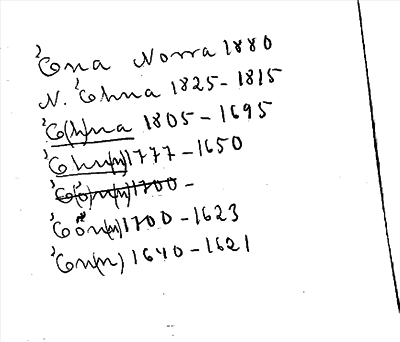 ²Ena Norra 1880
N. ²Ehna 1825-1815
²E(h)na 1805-1695
²Ehn(n) 1777-1650
²E(ö)n(n) 1700-
²Eön(n) 1700-1623
²En(n) 1640-1621